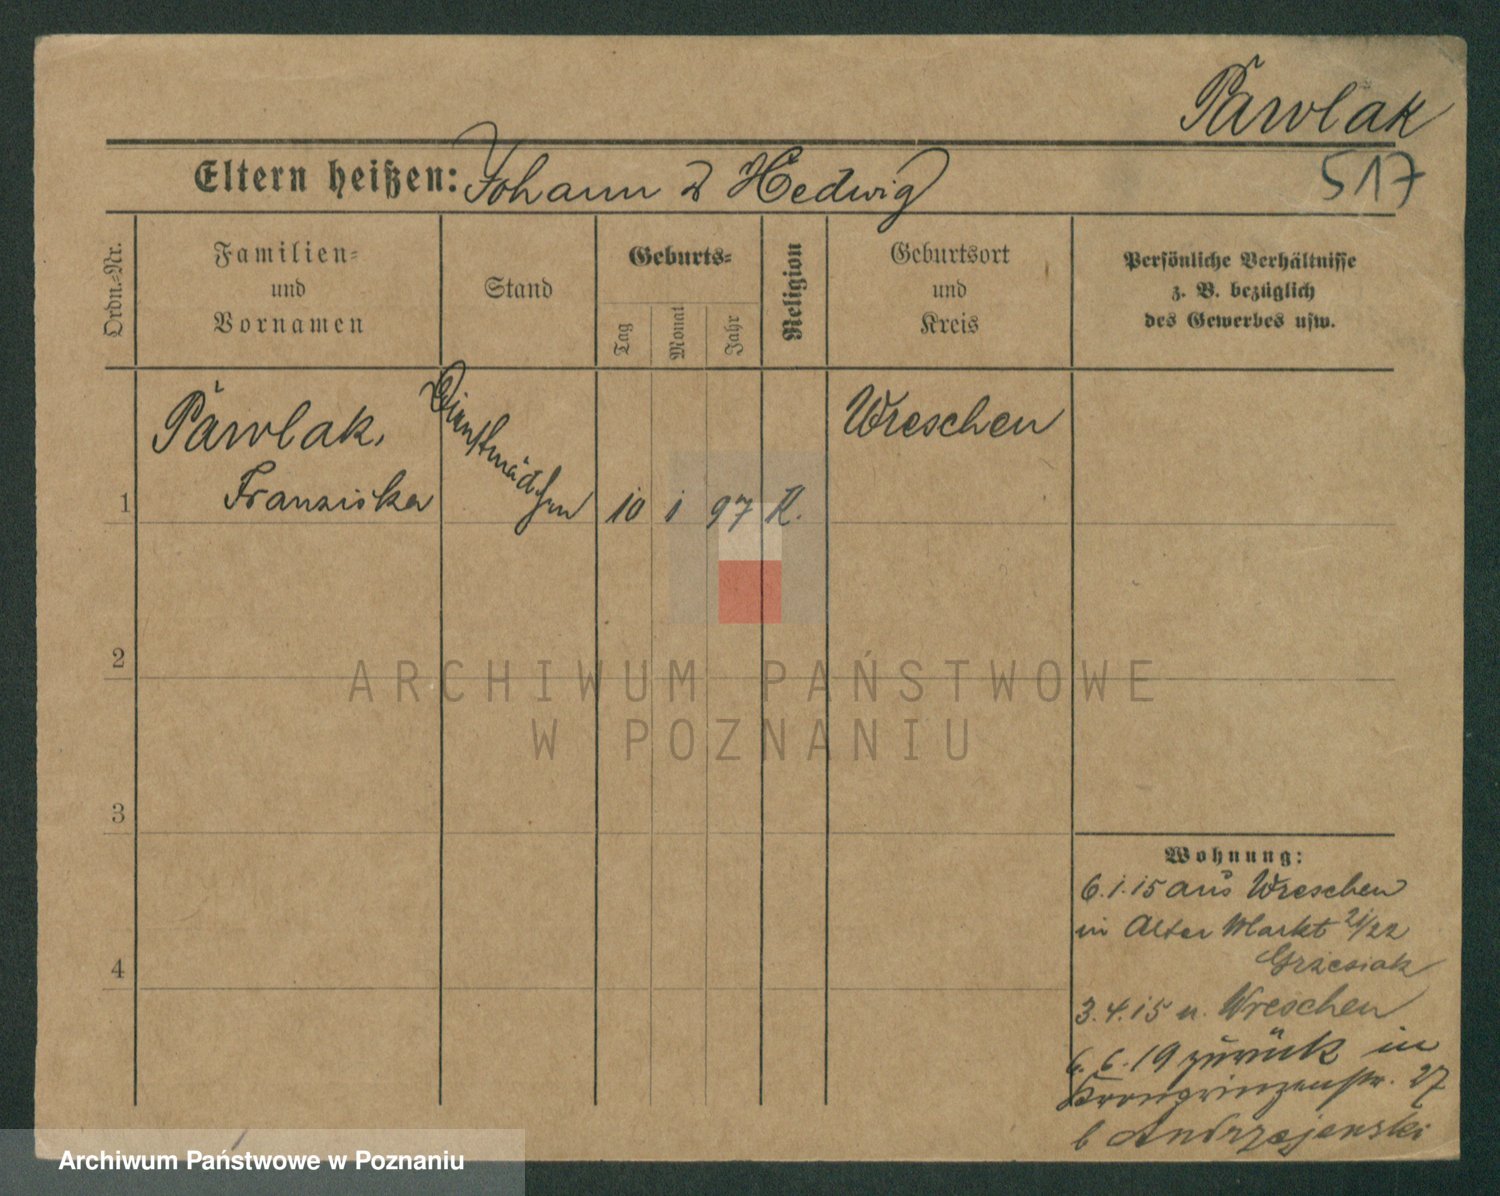 Pawlak
517
Eltern heißen: Johann & Hedwig
Ordn.-Nr.
Familien-
und
Vornamen
Stand
Geburts-
Tag
Monat
Jahr
Religion
Geburtsort
und
Kreis
Persönliche Verhältnisse
z. B. bezüglich
des Gewerbes usw.
Pawlak,
Dienstmädchen
Wreschen
1 Franziska 10 1 97 K.
2
3
4
Wohnung:
6.1.15 aus Wreschen
in Alter Markt 21/22
Grzesiak
3.4.15 n. Wreschen
6.6.19 zurück in
Kronprinzenstr. 27
b Andrzejewski
ARCHIWUM PAŃSTWOWE
W POZNANIU
Archiwum Państwowe w Poznaniu